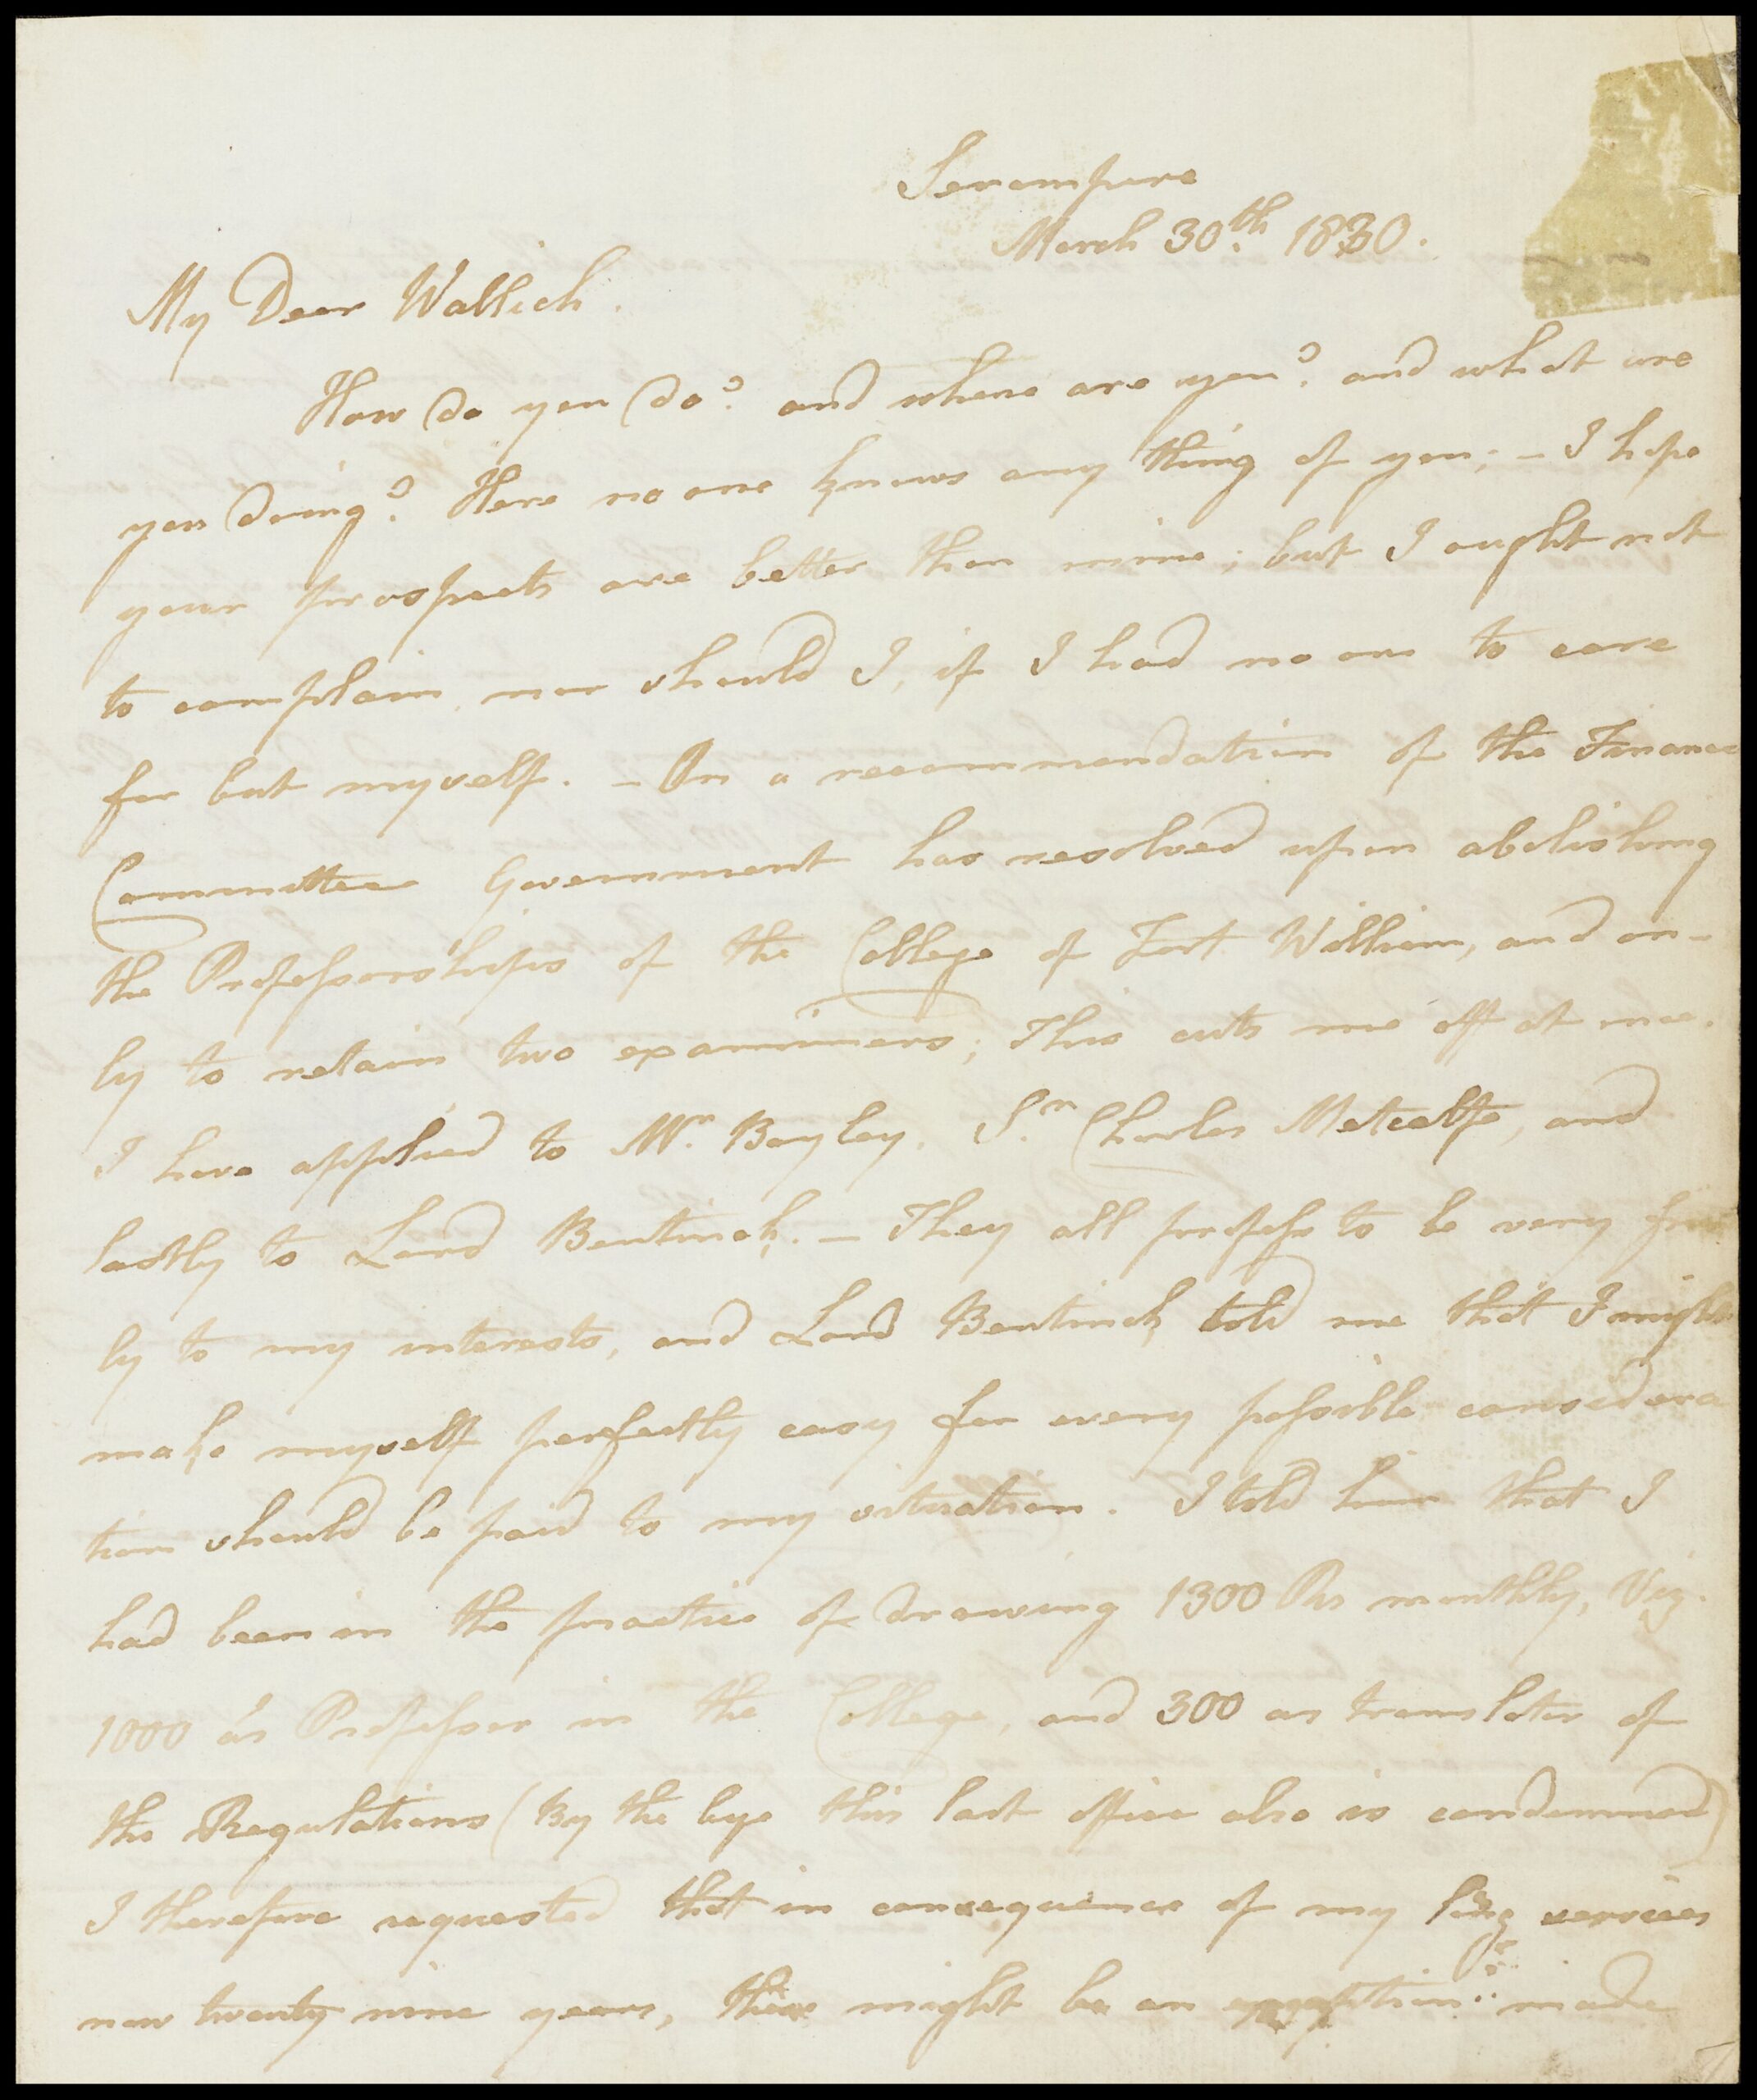 Serampore
March 30th. 1830.
My Dear Wallich.
How do you do? and where are you? and what are
you doing? Here no one knows any thing of you; – I hope
your prospects are better than mine; but I ought not
to complain, nor should I, if I had no one to care
for but myself. – On a recommendation of the Finance
Committee Government has resolved upon abolishing
the Professorships of the College of Fort William, and on-
ly to retain two examiners; This cuts me off at once.
I have applied to Mr. Bayley, Sr. Charles Metcalfe, and
lastly to Lord Bentinck. – They all profess to be very frien
ly to my interests, and Lord Bentinck told me that I might
make myself perfectly easy for every possible considera
tion should be paid to my situation. I told him that I
had been in the practice of drawing 1300 Rs monthly, Viz.
1000 as Professor in the College, and 300 as translator of
the Regulations (By the bye this last office also is condemned)
I therefore requested that in consequence of my long services
now twenty nine years, there might be an exception made